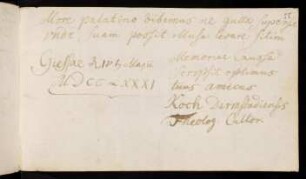 More palatino bibimus ne gutta supersit
unde suam possit Musca levare sitim
Giessae d. 5 Maji
MDCCXXXI
Memoriae Causa
scripsit optimus
tuus amicus
Koch Darmstadiensis
Theolog. Cultor.